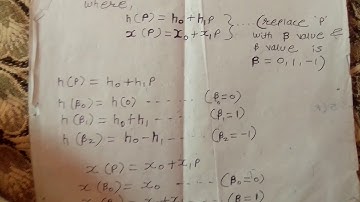 where,
h(P) = h0 + h1P } .... (replace 'P'
x(P) = x0 + x1P } with β value e
β value is
β = 0, 1, -1)
h(P) = h0 + h1P
h(β0) = h(0) ------ (β0=0)
h(β1) = h0 + h1 ---- (β1=1)
h(β2) = h0 - h1 ---- (β2=-1)
x(P) = x0 + x1P
x(β0) = x0 ---- (β0=0)